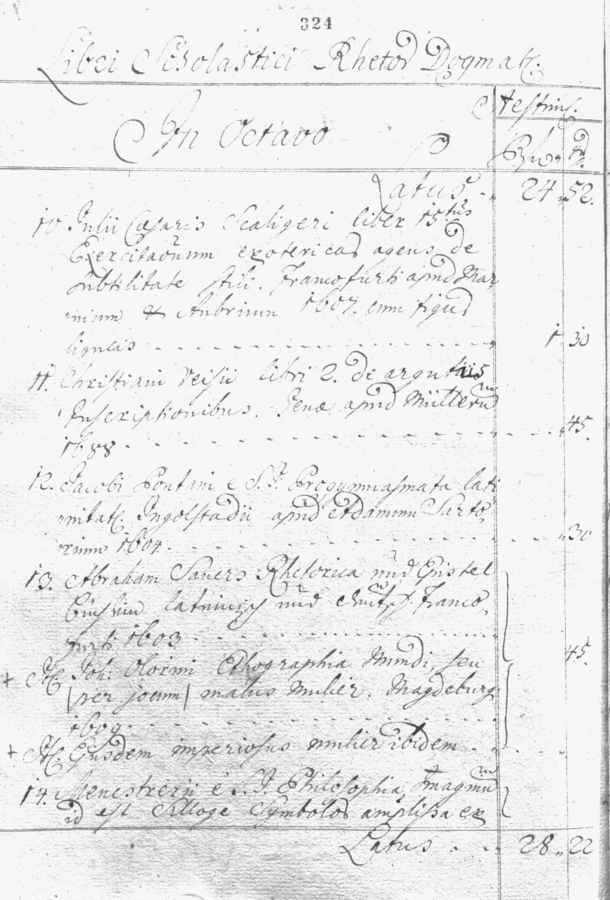 324
Libri Scholastici Rhetor Dogmatt:
Aestim:
In Octavo
Latus . „ 24 „ 52.
10 Julii Caesaris Scaligeri liber 15tus
Exercitaōnum exotericas agens de
subtilitate stili. Francofurti apud Mar
nium & Aubrium 1607. cum figuis
ligneis . . . . „ 1 „ 30
11. Christiani Weisii libri 2. de argutiis
Inscriptionibus. Jenæ apud Müllerum
1688 . . . . 45.
12. Jacobi Pontani e S. J. Progymnasmata lati
nitatis. Ingolstadii apud Adamum Sarto,
rium 1604. . . . . 30
13. Abraham Sauers Rhetorica und Epistel
Büchlein lateinisch und Teutsch. Franco,
furti 1603 . . . .
45.
+ It: Joh: Olorini Ethographia Mundi, seu
(per jocum) malus Mulier. Magdeburg
1609 . . . .
+ It: Ejusdem imperiosus mulier ibidem . .
14. Menestrerii e S. J. Philosophia Imaginum
id est Silloge Symbolor amplissa ex
Latus . . . 28 „ 22